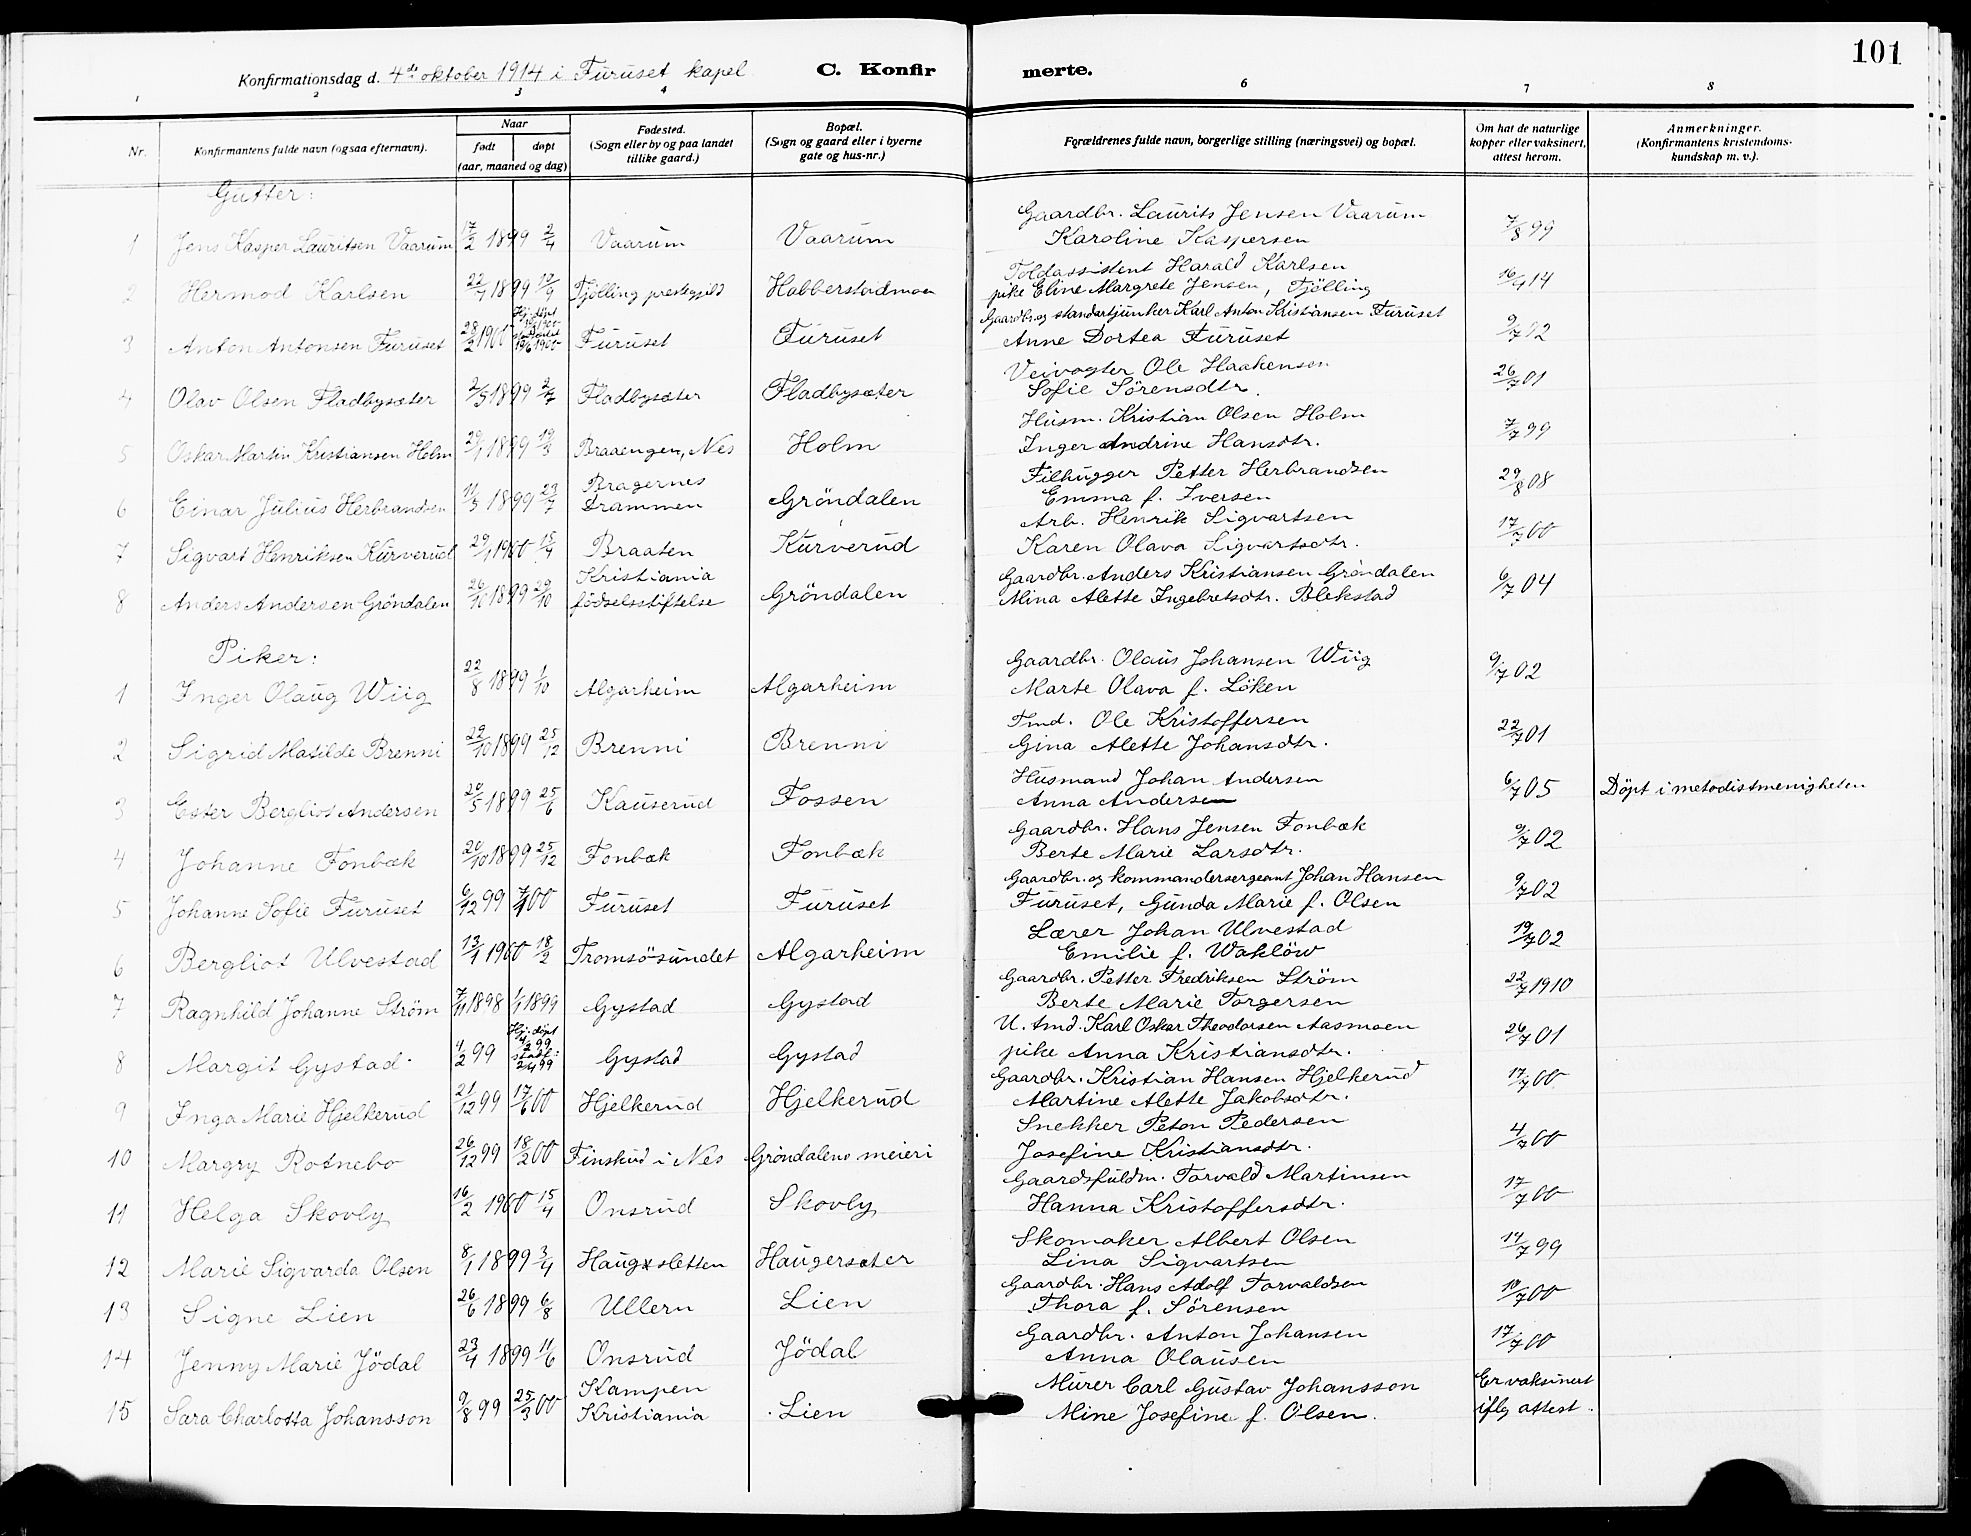 101
Konfirmationsdag d. 4de oktober 1914 i Furuset kapel C. Konfirmerte.
1 2 3 4 6 7 8
Nr. Konfirmantens fulde navn (ogsaa efternavn). Naar født døpt (aar, maaned og dag) Fødested. (Sogn eller by og paa landet tillike gaard.) Bopæl. (Sogn og gaard eller i byerne gate og hus-nr.) Forældrenes fulde navn, borgerlige stilling (næringsvei) og bopæl. Om hat de naturlige kopper eller vaksinert, attest herom. Anmerkninger. (Konfirmantens kristendoms-kundskap m. v.).
Gutter:
1 Jens Kasper Lauritsen Vaarum 17/2 1899 2/4 Vaarum Vaarum Gaardbr. Laurits Jensen Vaarum Karoline Kaspersen 7/8 99
2 Hermod Karlsen 22/7 1899 17/9 Tjölling prestegjeld Habberstadmoen Toldassistent Harald Karlsen pike Eline Margrete Jensen, Tjölling 16/4 14
3 Anton Antonsen Furuset 28/2 1900 Hj. döpt Furuset Furuset Gaardbr. og standartjunker Karl Anton Kristiansen Furuset Anne Dortea Furuset 9/7 02
4 Olav Olsen Fladbysæter 2/5 1899 2/7 Fladbysæter Fladbysæter Veivogter Ole Haakenson Sofie Sörensdtr. 26/7 01
5 Oskar Martin Kristiansen Holm 29/1 1899 19/3 Braaengen, Nes Holm Husm. Kristian Olsen Holm Inger Andrine Hansdtr. 7/7 99
6 Einar Julius Herbrandsen 11/3 1899 23/7 Bragernes Drammen Gröndalen Filhugger Petter Herbrandsen Emma f. Iversen 29/8 08
7 Sigvart Henriksen Kurverud 29/1 1900 15/4 Braaten Kurverud Arb. Henrik Sigvartsen Karen Olava Sigvartsdtr. 17/7 00
8 Anders Andersen Gröndalen 26/10 1899 29/10 Kristiania födselsstiftelse Gröndalen Gaardbr. Anders Kristiansen Gröndalen Mina Alette Ingebretsdtr. Blekstad 6/7 04
Piker:
1 Inger Olaug Wiig 22/8 1899 1/10 Algarheim Algarheim Gaardbr. Olaus Johansen Wiig Marte Olava f. Löken 9/7 02
2 Sigrid Matilde Brenni 29/10 1899 25/12 Brenni Brenni Tmd. Ole Kristoffersen Gina Alette Johansdtr. 22/7 01
3 Ester Bergliot Andersen 20/5 1899 25/6 Kauserud Fossen Husmand Johan Andersen Anna Andersen 6/7 05 Döpt i metodistmenigheten
4 Johanne Fonbæk 20/10 1899 25/12 Fonbæk Fonbæk Gaardbr. Hans Jensen Fonbæk Berte Marie Larsdtr. 9/7 02
5 Johanne Sofie Furuset 6/12 99 7/1 00 Furuset Furuset Gaardbr. og kommandersergeant Johan Hansen Furuset, Gunda Marie f. Olsen 9/7 02
6 Bergliot Ulvestad 13/1 1900 18/2 Tromsösundet Algarheim Lærer Johan Ulvestad Emilie f. Waklöw 19/7 02
7 Ragnhild Johanne Ström 7/11 1898 1/1 1899 Gystad Gystad Gaardbr. Petter Fredriksen Ström Berte Marie Torgersen 22/7 1910
8 Margit Gystad 4/2 99 Hj. döpt 4/2 99 stadf: 2/4 99 Gystad Gystad U. tmd. Karl Oskar Theodorsen Aasmoen pike Anna Kristiansdtr. 26/7 01
9 Inga Marie Hjelkerud 21/12 99 17/6 00 Hjelkerud Hjelkerud Gaardbr. Kristian Hansen Hjelkerud Martine Alette Jakobsdtr. 17/7 00
10 Margry Rotnebo 26/12 99 18/2 00 Finskud i Nes Gröndalens meieri Snekker Peton Pedersen Josefine Kristiansdtr. 4/7 00
11 Helga Skovly 16/2 1900 15/4 Onsrud Skovly Gaardsfuldm. Torvald Martinsen Hanna Kristoffersdtr. 17/7 00
12 Marie Sigvarda Olsen 8/1 1899 3/4 Haugsletten Haugersæter Skomaker Albert Olsen Lina Sigvartsen 14/7 99
13 Signe Lien 26/6 1899 6/8 Ullern Lien Gaardbr. Hans Adolf Torvaldsen Thora f. Sörensen 18/7 00
14 Jenny Marie Jödal 23/4 1899 11/6 Onsrud Jödal Gaardbr. Anton Johansen Anna Olausen 17/7 00
15 Sara Charlotta Johansson 9/8 99 25/3 00 Kampen Kristiania Lien Murer Carl Gustav Johansson Mine Josefine f. Olsen. Er vaksinert iflg attest.